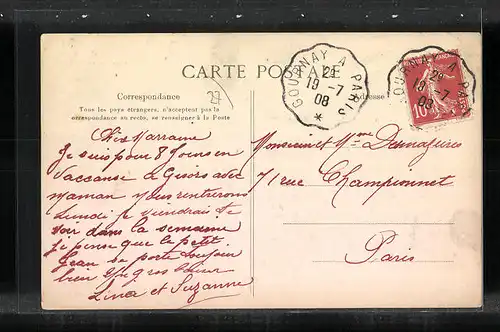 CARTE POSTALE
Correspondance
Tous les pays étrangers, n'acceptent pas la
correspondance au recto, se renseigner à la Poste
Adresse
27
GOURNAY A PARIS
2E
19 -7
08
GOURNAY A PARIS
2E
19 -7
08
10
Chère Marraine
Je suis pour 8 Jours en
vaccanse a Gisors avec
maman nous rentrerons
Lundi je viendrai te
voir dans la semaine
je pense que le petit
Jean se porte toujour
bien
gros
Line et Suzanne
Monsieur et Mme
71 rue Championnet
Paris